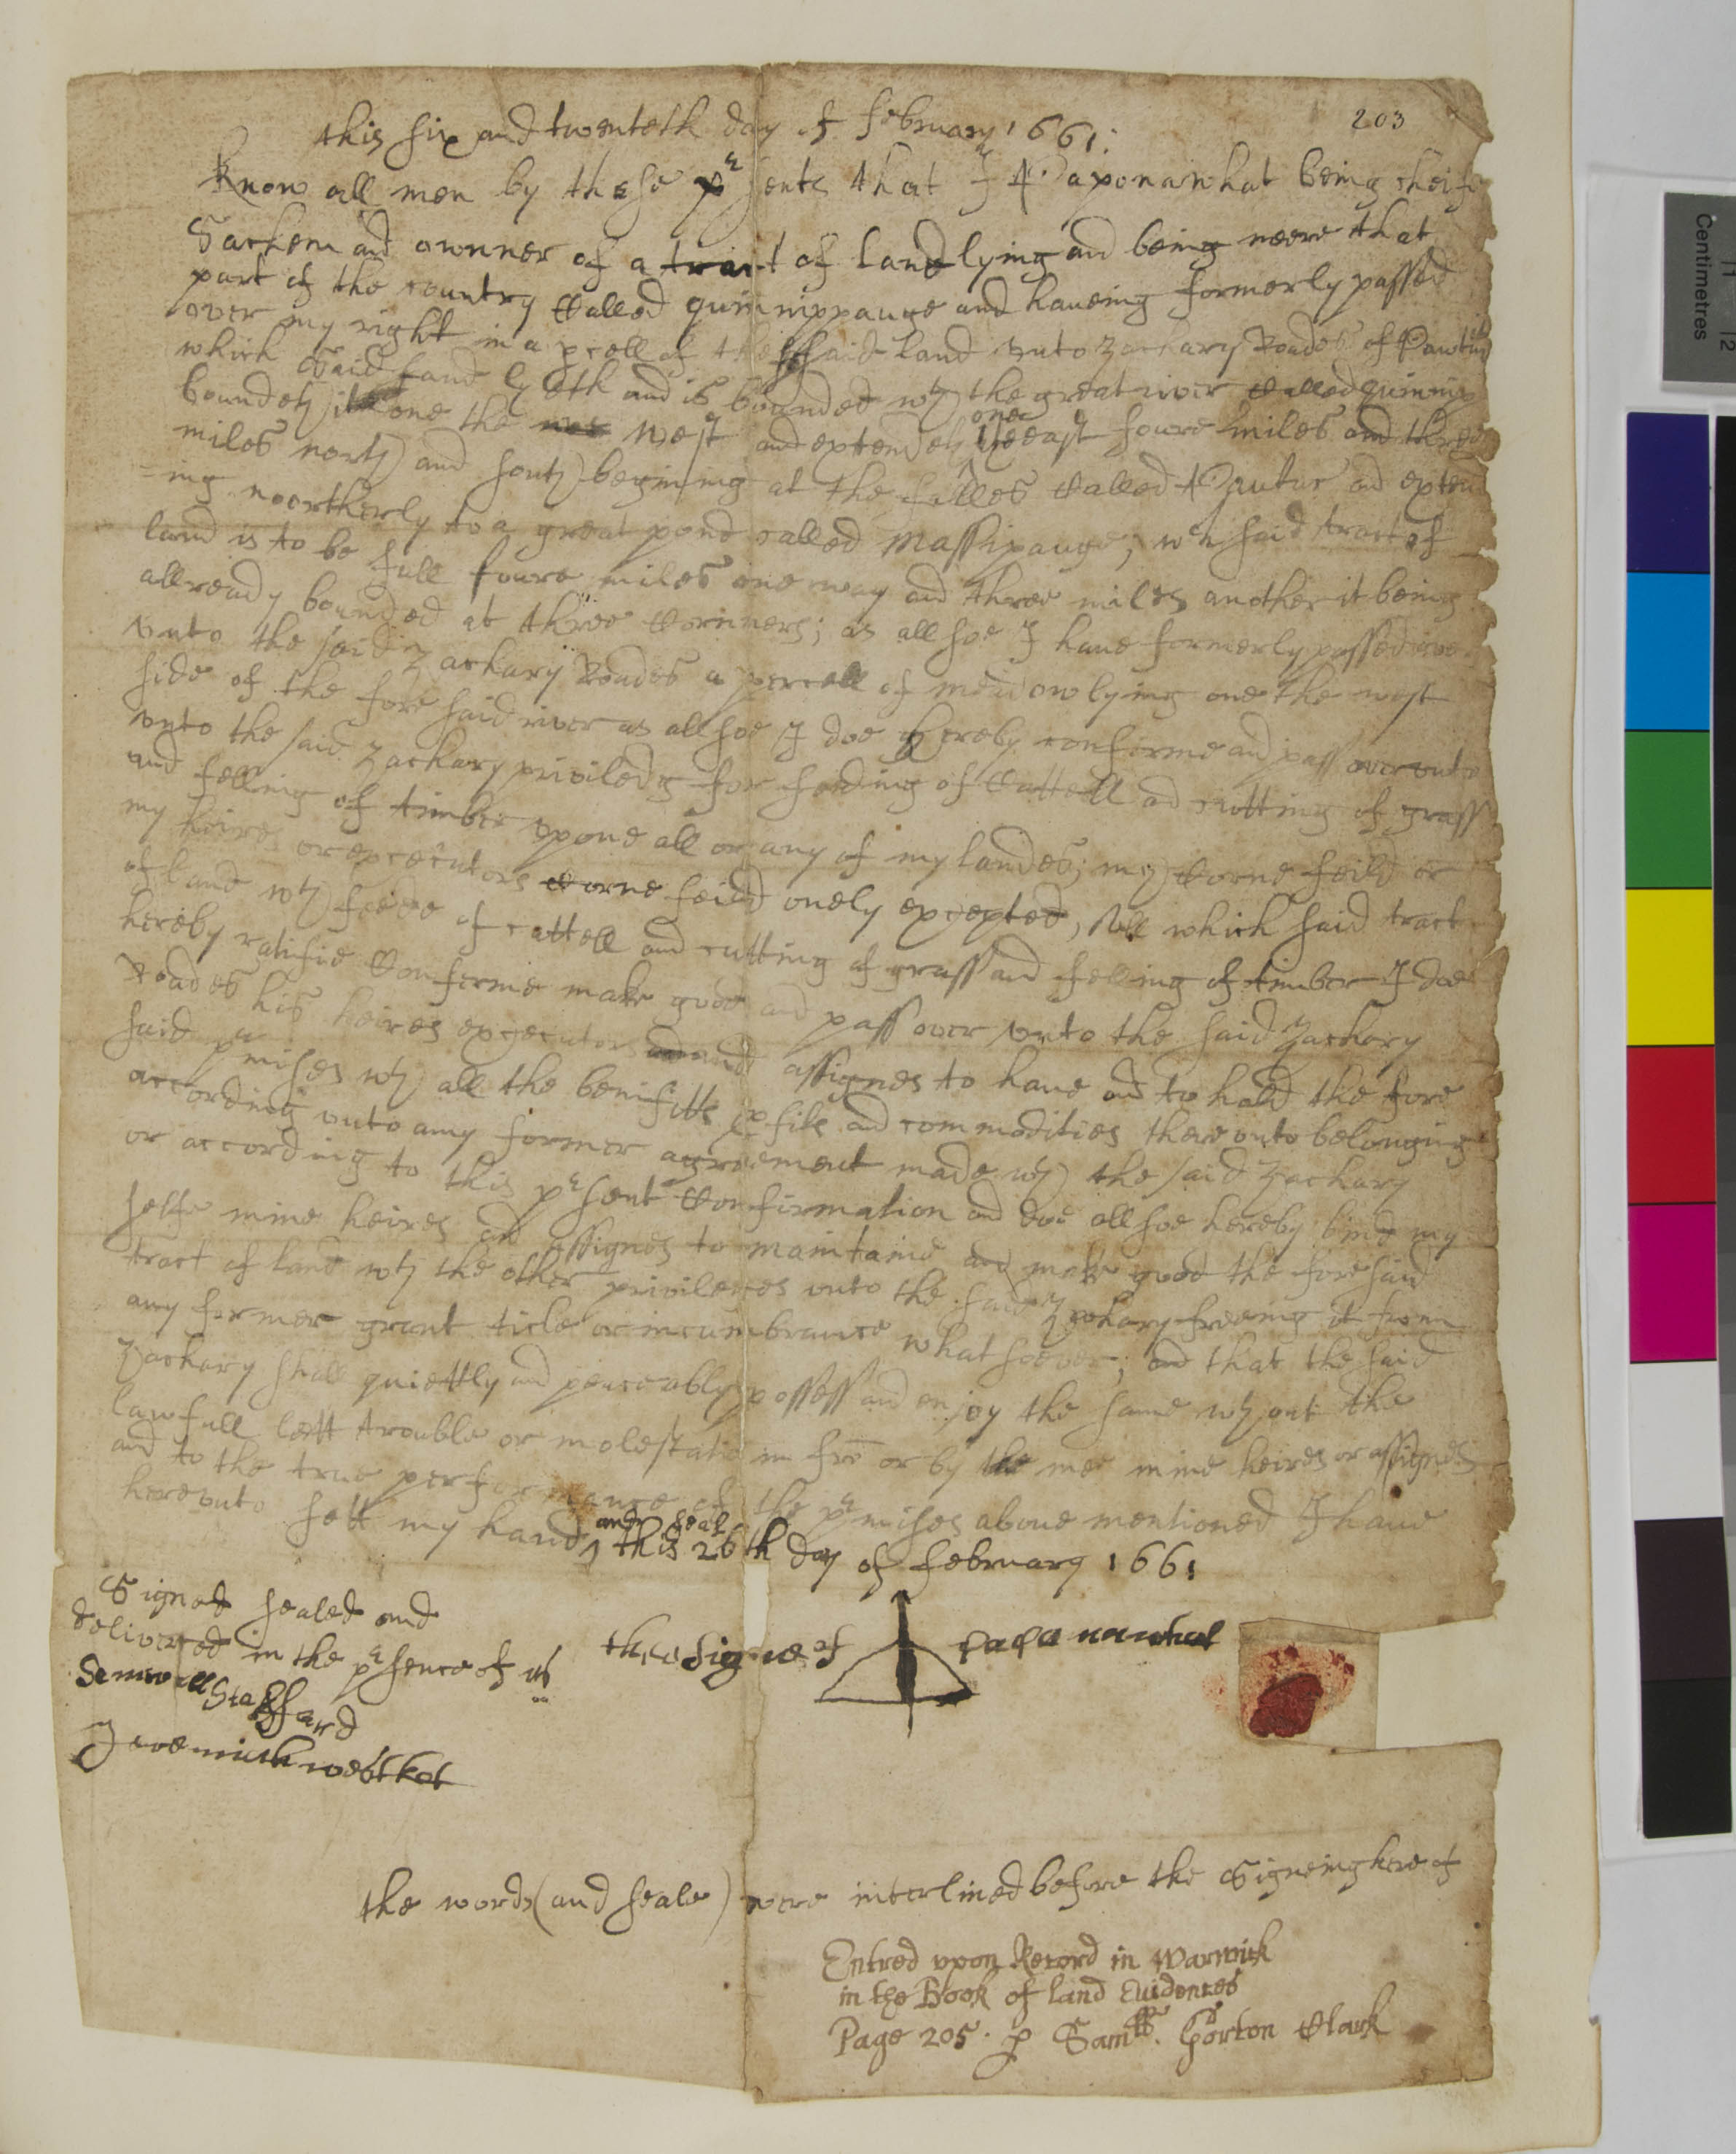 203
this six and twenteth day of February 1661:
Know all men by these prsents that I Paponawhat being cheif
Sachem and ownner of a tract of land lying and being neere that
part of the country called quinnippauge and haveing formerly passed
over my right in a pcell of the said land vnto Zachary Roades of Pawtux
which said land lyeth and is bounded wth the great river called quinnip
boundeth it one the west and extendeth one ye east foure miles and three
miles north and south begining at the falles called Pautur and extend
ing noortherly to a great pond called Massipauge; wch said tract of
land is to be full foure miles one way and three miles another it being
allready bounded at three cornners; as allsoe I have formerly passed over
vnto the said Zachary Roades a percell of meadow lying one the west
side of the fore said river as allsoe I doe hereby confirme and pass over vnto
vnto the said Zachary priviledg for feeding of cattell and cutting of grass
and felling of timber vpone all or any of my landes; my corne feild or
my heires or executors corne feild onely excepted, All which said tract
of land wth feede of cattell and cutting of grass and felling of timber I doe
hereby ratifie confirme make good and pass over vnto the said Zachary
Roades his heires executors and assignes to have and to hold the fore
said prmises wth all the benifitts pfits and commodities there vnto belonging
according vnto any former agreement made wth the said Zachary
or according to this prsent confirmation and doe allsoe hereby bind my
selfe mine heires and assignes to maintaine and make good the fore said
tract of land wth the other priviledges vnto the said Zachary freeing it from
any former grant title or incumbrance whatsoever; and that the said
Zachary shall quiettly and peaceably possess and enjoy the same wthout the
lawfull lett trouble or molestation in fro or by the mee mine heires or assignes
and to the true performance of the prmises above mentioned I have
hereunto sett my hand and seal this 26th day of February 1661
Signed sealed and
delivered in the prsence of us
Samuell Stafford
Jeremiah westkot
the signe of papanawhat
the words (and seale) were interlined before the Signeing here of
Entred vpon Record in Warwick
in the Book of land Evidences
Page 205. p Samll. Gorton Clark
Centimetres